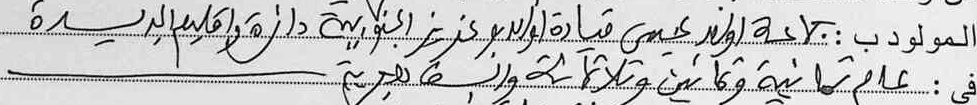 المولود ب : جماعة اولاد عيسى قيادة اولاد بوعزيز الجنوبية دائرة واقليم الجديدة
في : عام ثمانية وثمانين وثلاثمائة والف هجرية